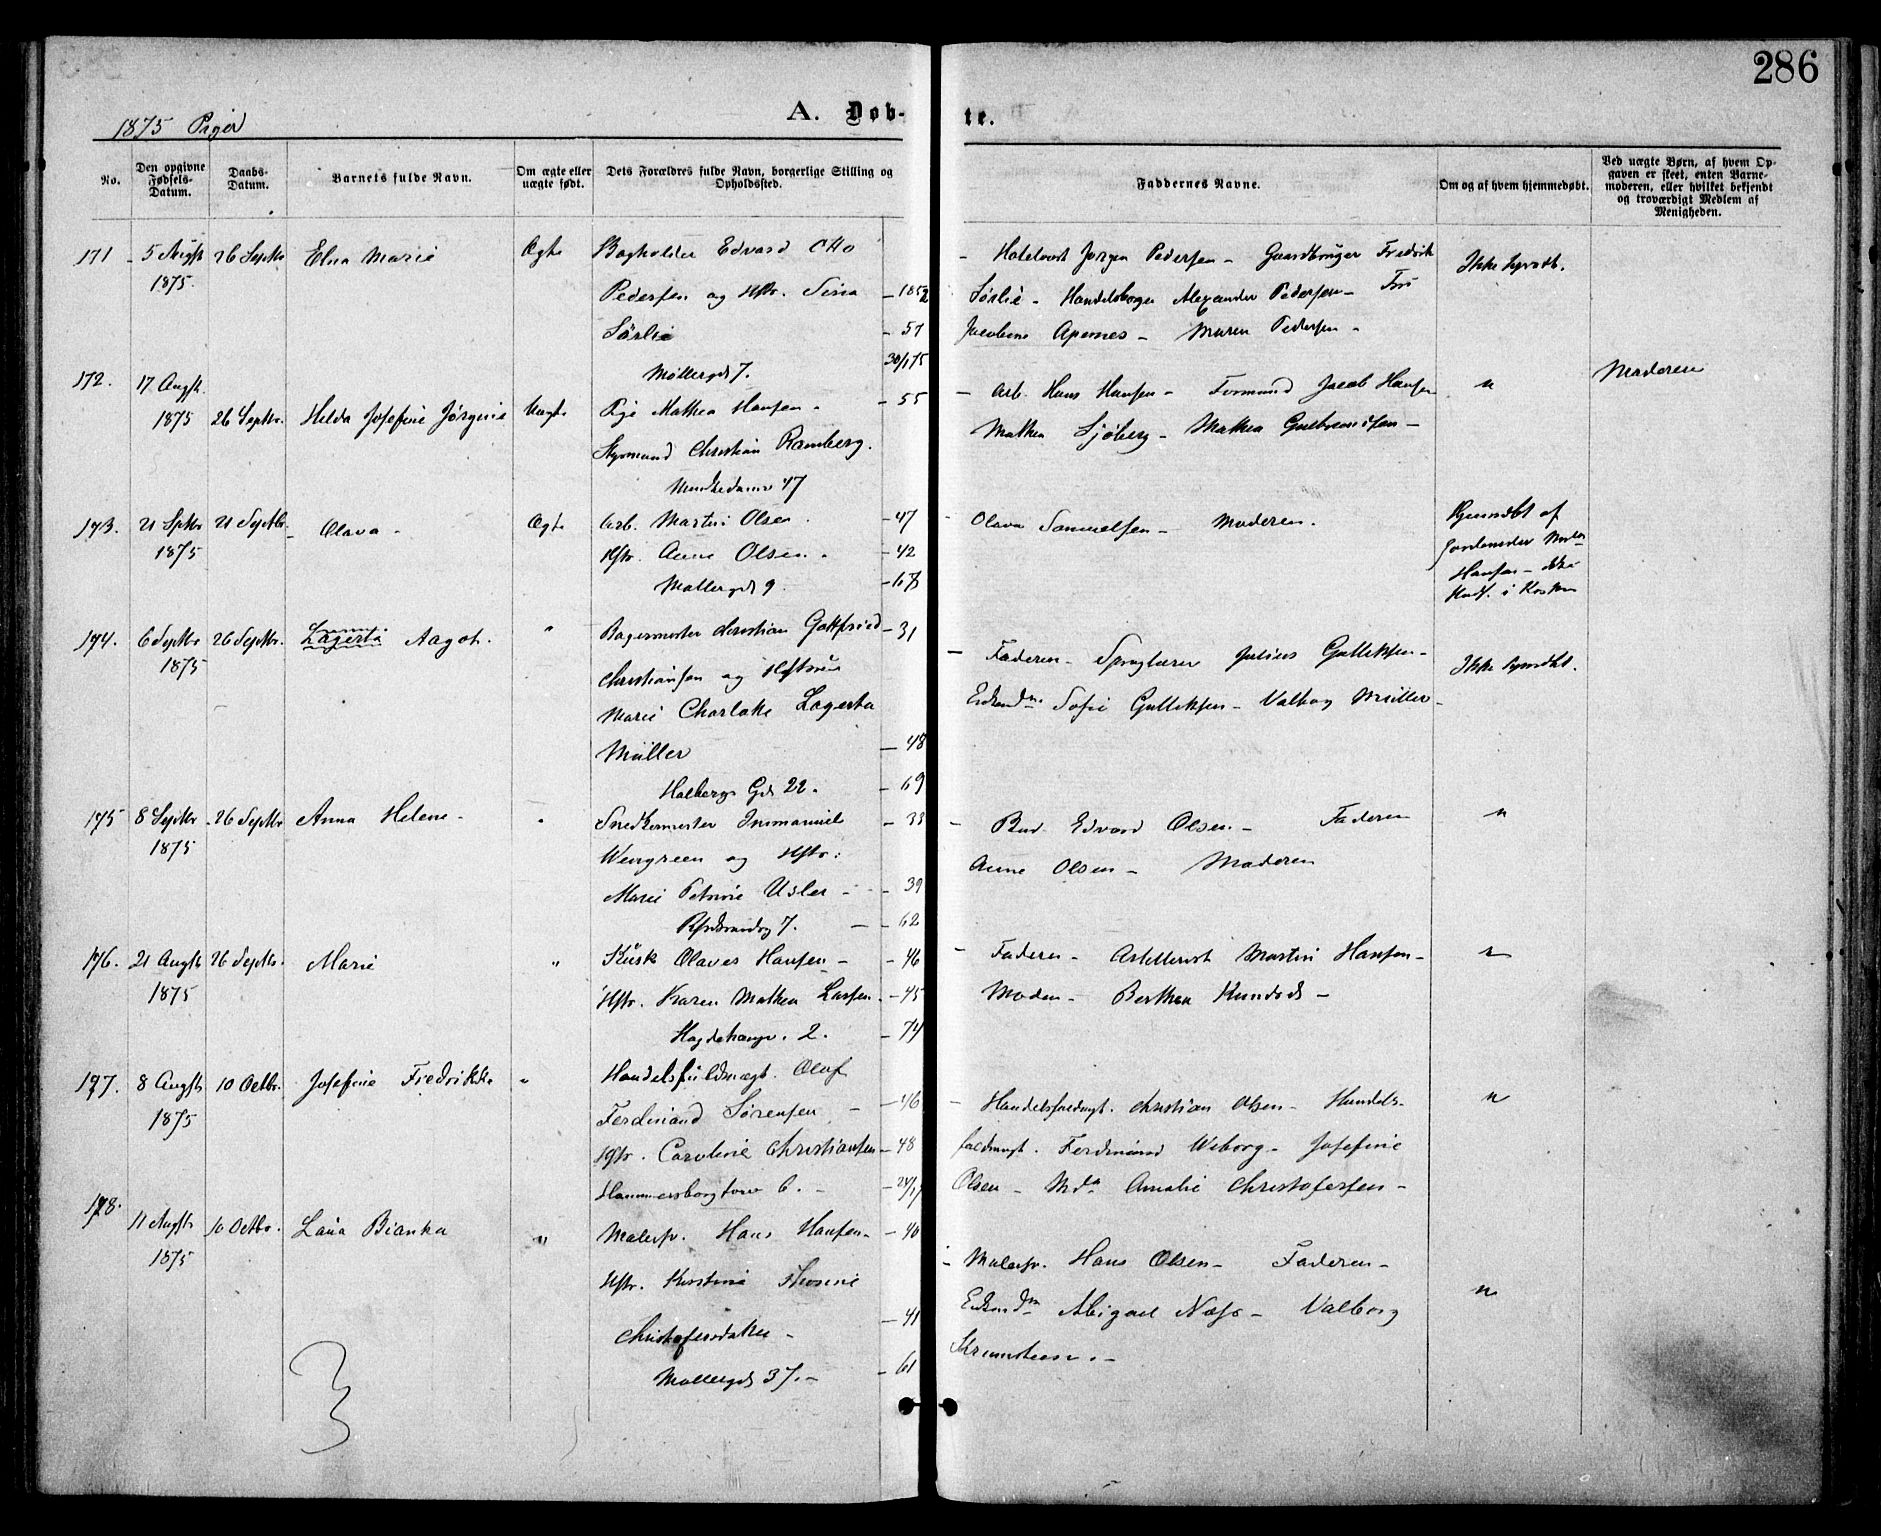 286
1875 Piger
A. Døb-
te.
No.
Den opgivne Fødsels-Datum.
Daabs-Datum.
Barnets fulde Navn.
Om ægte eller uægte født.
Dets Forældres fulde Navn, borgerlige Stilling og Opholdssted.
Faddernes Navne.
Om og af hvem hjemmedøbt.
Ved uægte Børn, af hvem Op-
gaven er skeet, enten Barne-
moderen, eller hvilket bekjendt
og troværdigt Medlem af
Menigheden.
171 5 Augst 26 Septbr Elna Marie Ægte Bogholder Edvard Otto
1875
Pedersen og Hstr. Sina - 1852
Sørlie - 51
Møllergd 7. 30/1 75
- Hotelvært Jørgen Pedersen - Gaardbruger Fredrik
Sørlie - Handelsborger Alexander Pedersen - Frk
Jacobine Apenes - Maren Pedersen -
Ikke hjemdbt.
172. 17 Augst
1875 26 Septbr. Helda Josefine Jørgine Uægte Pige Mathea Hansen - - 55
Styrmand Christian Ramberg.
Munkedamsv 47
- Arb. Hans Hansen - Formand Jacob Hansen
Mathea Sjöberg - Mathea Gulbrandsen -
"
Moderen
173. 21 Sptbr 21 Septbr. Olava - Ægte Arb. Martin Olsen - - 47
1875
Hstr. Anne Olsen - - 42
Møllergd 9. - 67
Olava Samuelsen - Moderen.
Hjemdbt af
Jordemoder
Hansen - ikke
i Kirken
174. 6 Septbr 26 Septbr. Lagerta Aagot. " Bagermester Christian Gottfried - 31
1875
Christiansen og Hustru
Marie Charlotte Lagerta
Müller - 48
Holbergs Gd 22. - 69
- Faderen - Sproglærer Julius Gulliksen -
Sofie Gulliksen - Valborg Müller -
Ikke hjemdbt.
175 8 Septbr 26 Septbr Anna Helene - " Snedkermester Immanuel - 33
1875
Wengreen og Hstr:
Marie Petrine Usler - - 39
7. - 62
- Bud Edvard Olsen - Faderen
Anne Olsen - Moderen
"
176. 21 Augst 26 Septbr. Marie " Kusk Olaves Hansen - - 46
1875
Hstr. Karen Mathea Larsen - 45
Hegdehaugv. 2. - 74
- Faderen - Artillerist Martin Hansen -
Moderen - Berthea Knudsd -
"
177. 8 Augst 10 Octbr. Josefine Fredrikke " Handelsfuldmægt. Oluf
1875
Ferdinand Sørensen - - 46
Hstr. Caroline Christiansen - 48
Hammersborgtorv 6. -
- Handelsfuldmgt. Christian Olsen - Handels-
fuldmægt. Ferdinand Weborg - Josefine
Olsen - Mda Amalie Christofersen -
"
178.
11 Augst 10 Octbr. Laura Bianka " Malersv. Hans Hansen - - 40
1875
Hstr. Kirstine Thorine
Christofersdatter - - 41
Møllergd 37. - - 61
- Malersv. Hans Olsen - Faderen -
Abigael Næss - Valborg
"
3